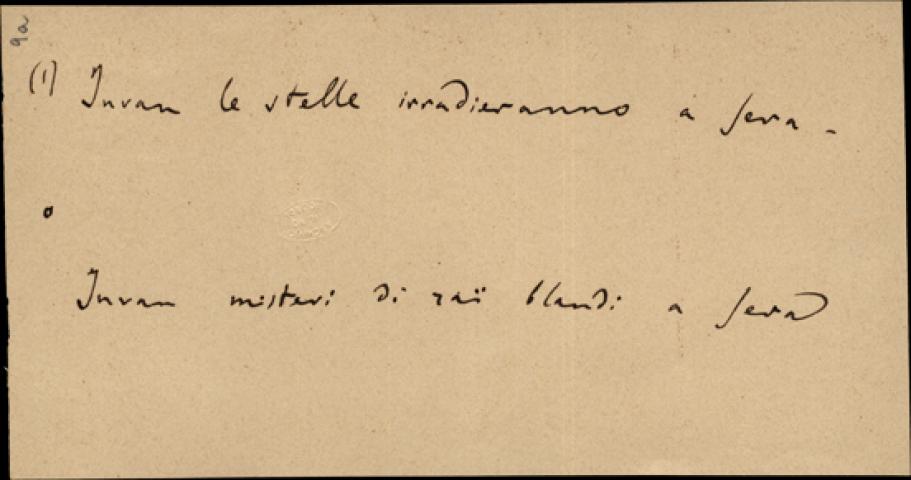 9a
(1) Invan le stelle irradieranno a sera -
o
Invan misteri di raï blandi a sera